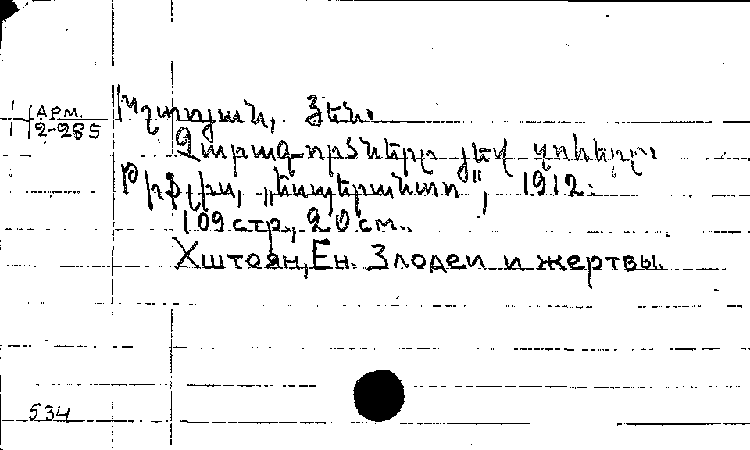 АРМ.
2-285
Խշտոյան, Յեն.
Չարագործները յեվ զոհերը.
Թիֆլիս, „Էսպերանտո", 1912.
109 стр., 20 см.
Хштоян, Ен. Злодеи и жертвы.
534